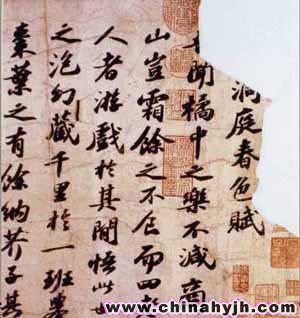 洞庭春色賦
聞橘中之樂不減商
山豈霜餘之不食而四老
人者游戲於其間悟此世
之泡幻藏千里於一班舉
棗葉之有餘納芥子其
www.chinahyjh.com